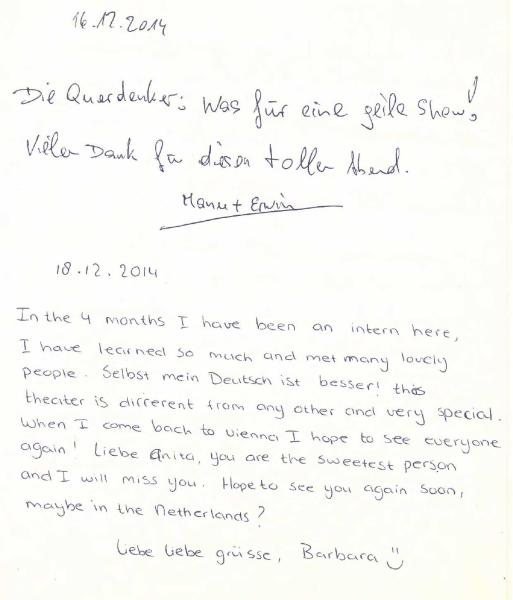 16.12.2014
Die Querdenker: Was für eine geile Show!
Vielen Dank für diesen tollen Abend.
Manu + Erwin
18.12.2014
In the 4 months I have been an intern here,
I have learned so much and met many lovely
people. Selbst mein Deutsch ist besser! this
theater is different from any other and very special.
When I come back to vienna I hope to see everyone
again! Liebe Anita, you are the sweetest person
and I will miss you. Hope to see you again soon,
maybe in the Netherlands?
Liebe liebe grüsse, Barbara